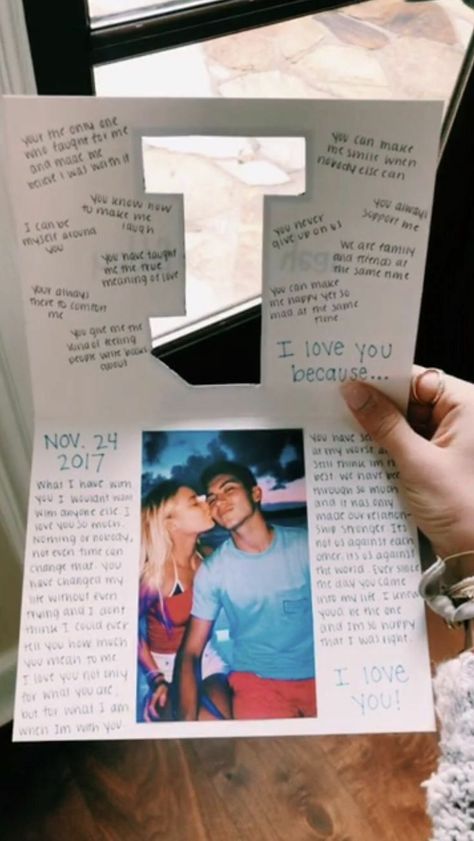 your the only one
who fought for me
and made me
believe I was worth it
You know how
to make me
laugh
I can be
myself around
you
You have taught
me the true
meaning of love
Your always
there to comfort
me
You give me the
kind of feeling
people write books
about
You can make
me smile when
nobody else can
You always
support me
You never
give up on us
We are family
and friends at
the same time
You can make
me happy yet so
mad at the same
time
I love you
because...
NOV. 24
2017
What I have with
you I wouldnt want
with anyone else. I
love you so much.
Nothing or nobody,
not even time can
change that. You
have changed my
life without even
trying and I dont
think I could ever
tell you how much
you mean to me
I love you not only
for what you are,
but for what I am
when Im with you
You have
at my worst
still think Im
best. We have been
through so much
and it has only
made our relation-
ship stronger. Its
not us against each
other, its us against
the world. Ever since
the day you came
into my life I knew
youd be the one
and Im so happy
that I was right.
I love
you!